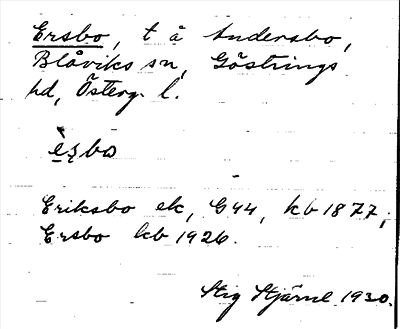 Ersbo, t å Andersbo,
Blåviks sn, Göstrings
hd, Österg. l.
èʂbω
Eriksbo ek, G 44, kb 1877;
Ersbo kb 1926.
Stig Stjärne 1930.